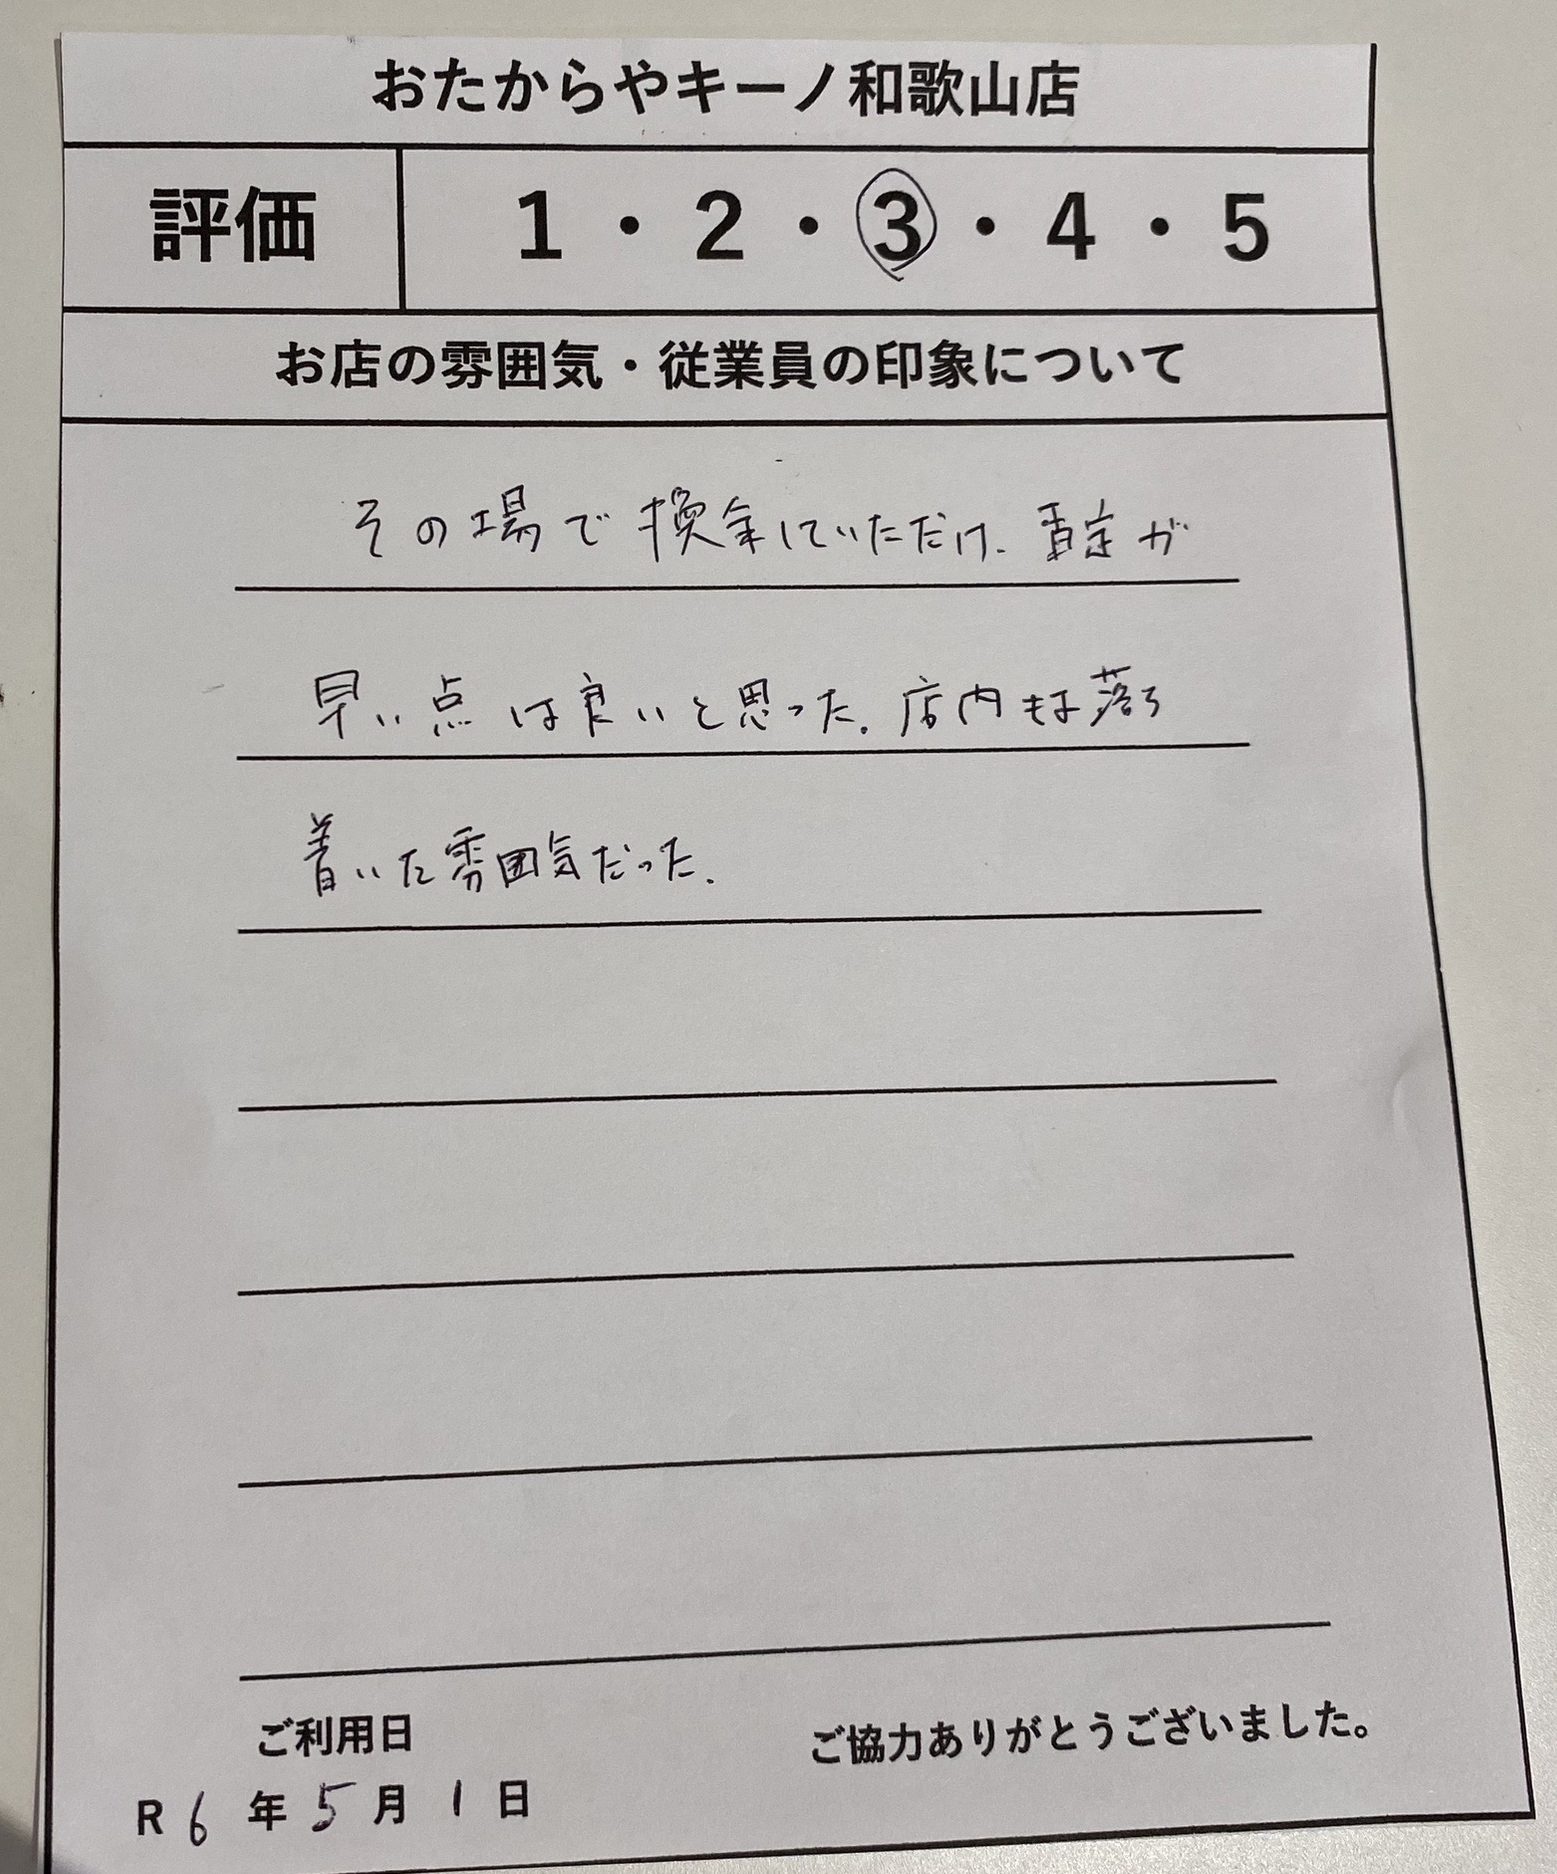 おたからやキーノ和歌山店
評価 1・2・3・4・5
お店の雰囲気・従業員の印象について
その場で換金していただけ、査定が
早い点は良いと思った。店内も落ち
着いた雰囲気だった。
ご利用日 ご協力ありがとうございました。
R6年5月1日